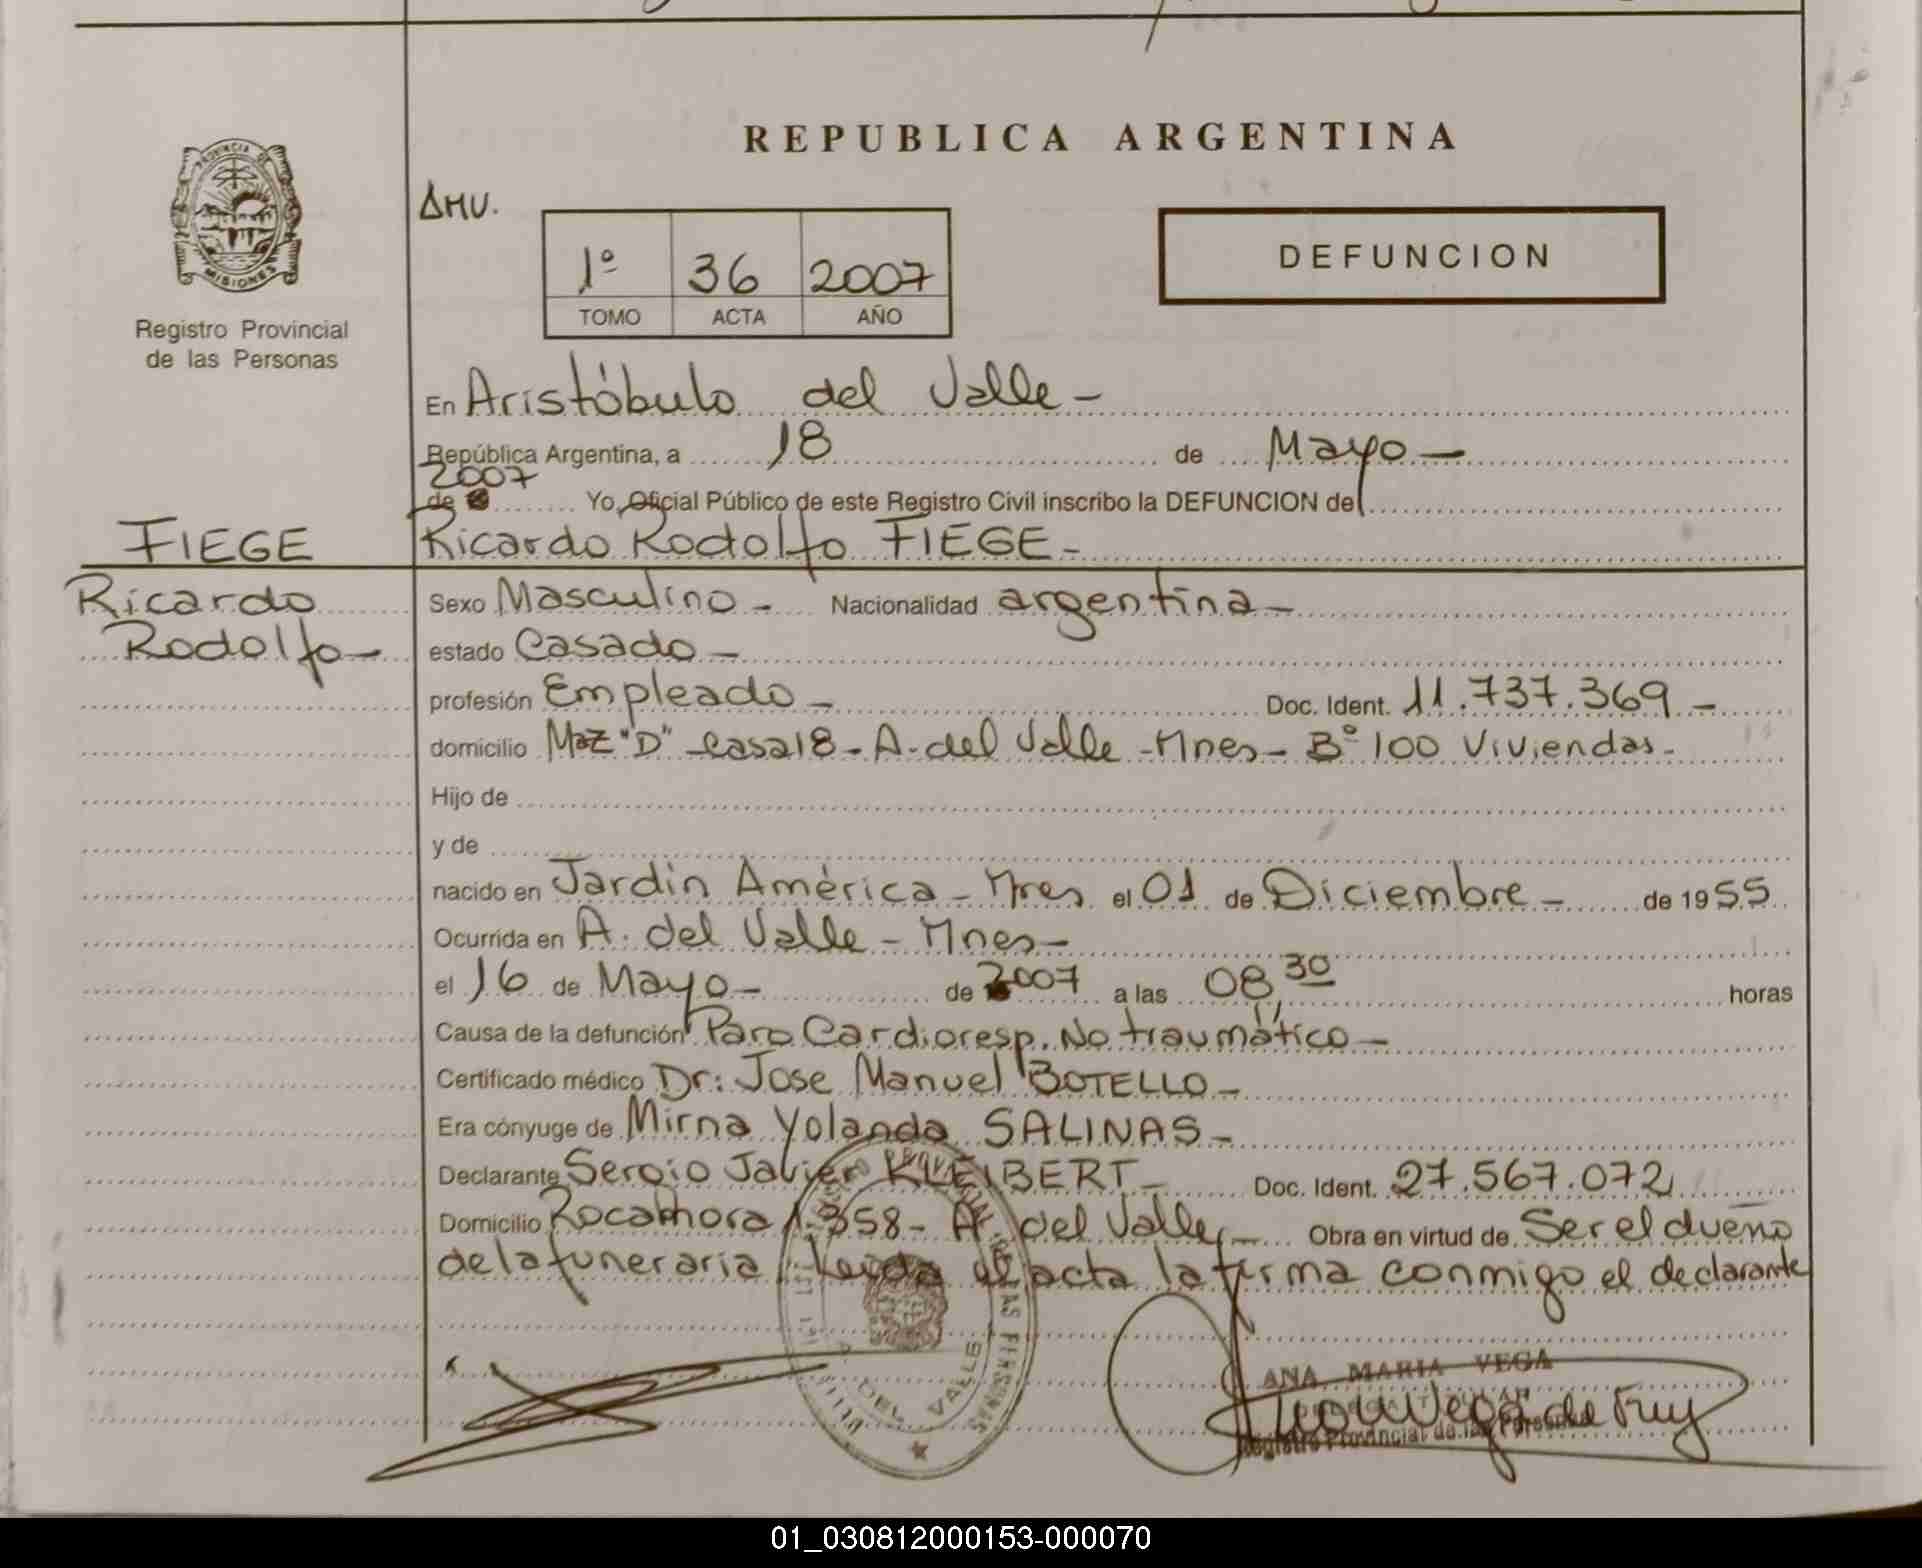 REPUBLICA ARGENTINA
PROVINCIA DE
MISIONES
Registro Provincial
de las Personas
AMV.
1º 36 2007
TOMO ACTA AÑO
DEFUNCION
En Aristóbulo del Valle -
República Argentina, a 18 de Mayo -
2007
de Yo, Oficial Público de este Registro Civil inscribo la DEFUNCION de
FIEGE
Ricardo
Rodolfo -
Ricardo Rodolfo FIEGE -
Sexo Masculino - Nacionalidad argentina -
estado Casado -
profesión Empleado - Doc. Ident. 11.737.369 -
domicilio Maz "D" - Casa 18 - A. del Valle - Mnes - Bº 100 Viviendas -
Hijo de
y de
nacido en Jardín América - Mnes el 01 de Diciembre - de 1955
Ocurrida en A. del Valle - Mnes -
el 16 de Mayo - de 2007 a las 08,30 horas
Causa de la defunción Paro Cardioresp. No traumático -
Certificado médico Dr: Jose Manuel BOTELLO -
Era cónyuge de Mirna Yolanda SALINAS -
Declarante Sergio Javier KLEIBERT - Doc. Ident. 27.567.072
Domicilio Rocamora 1.358 - A del Valle - Obra en virtud de Ser el dueño
de la funeraria Leida el acta la firma conmigo el declarante
DEL VALLE
ANA MARIA VEGA
Registro Provincial de las Personas
01_030812000153-000070